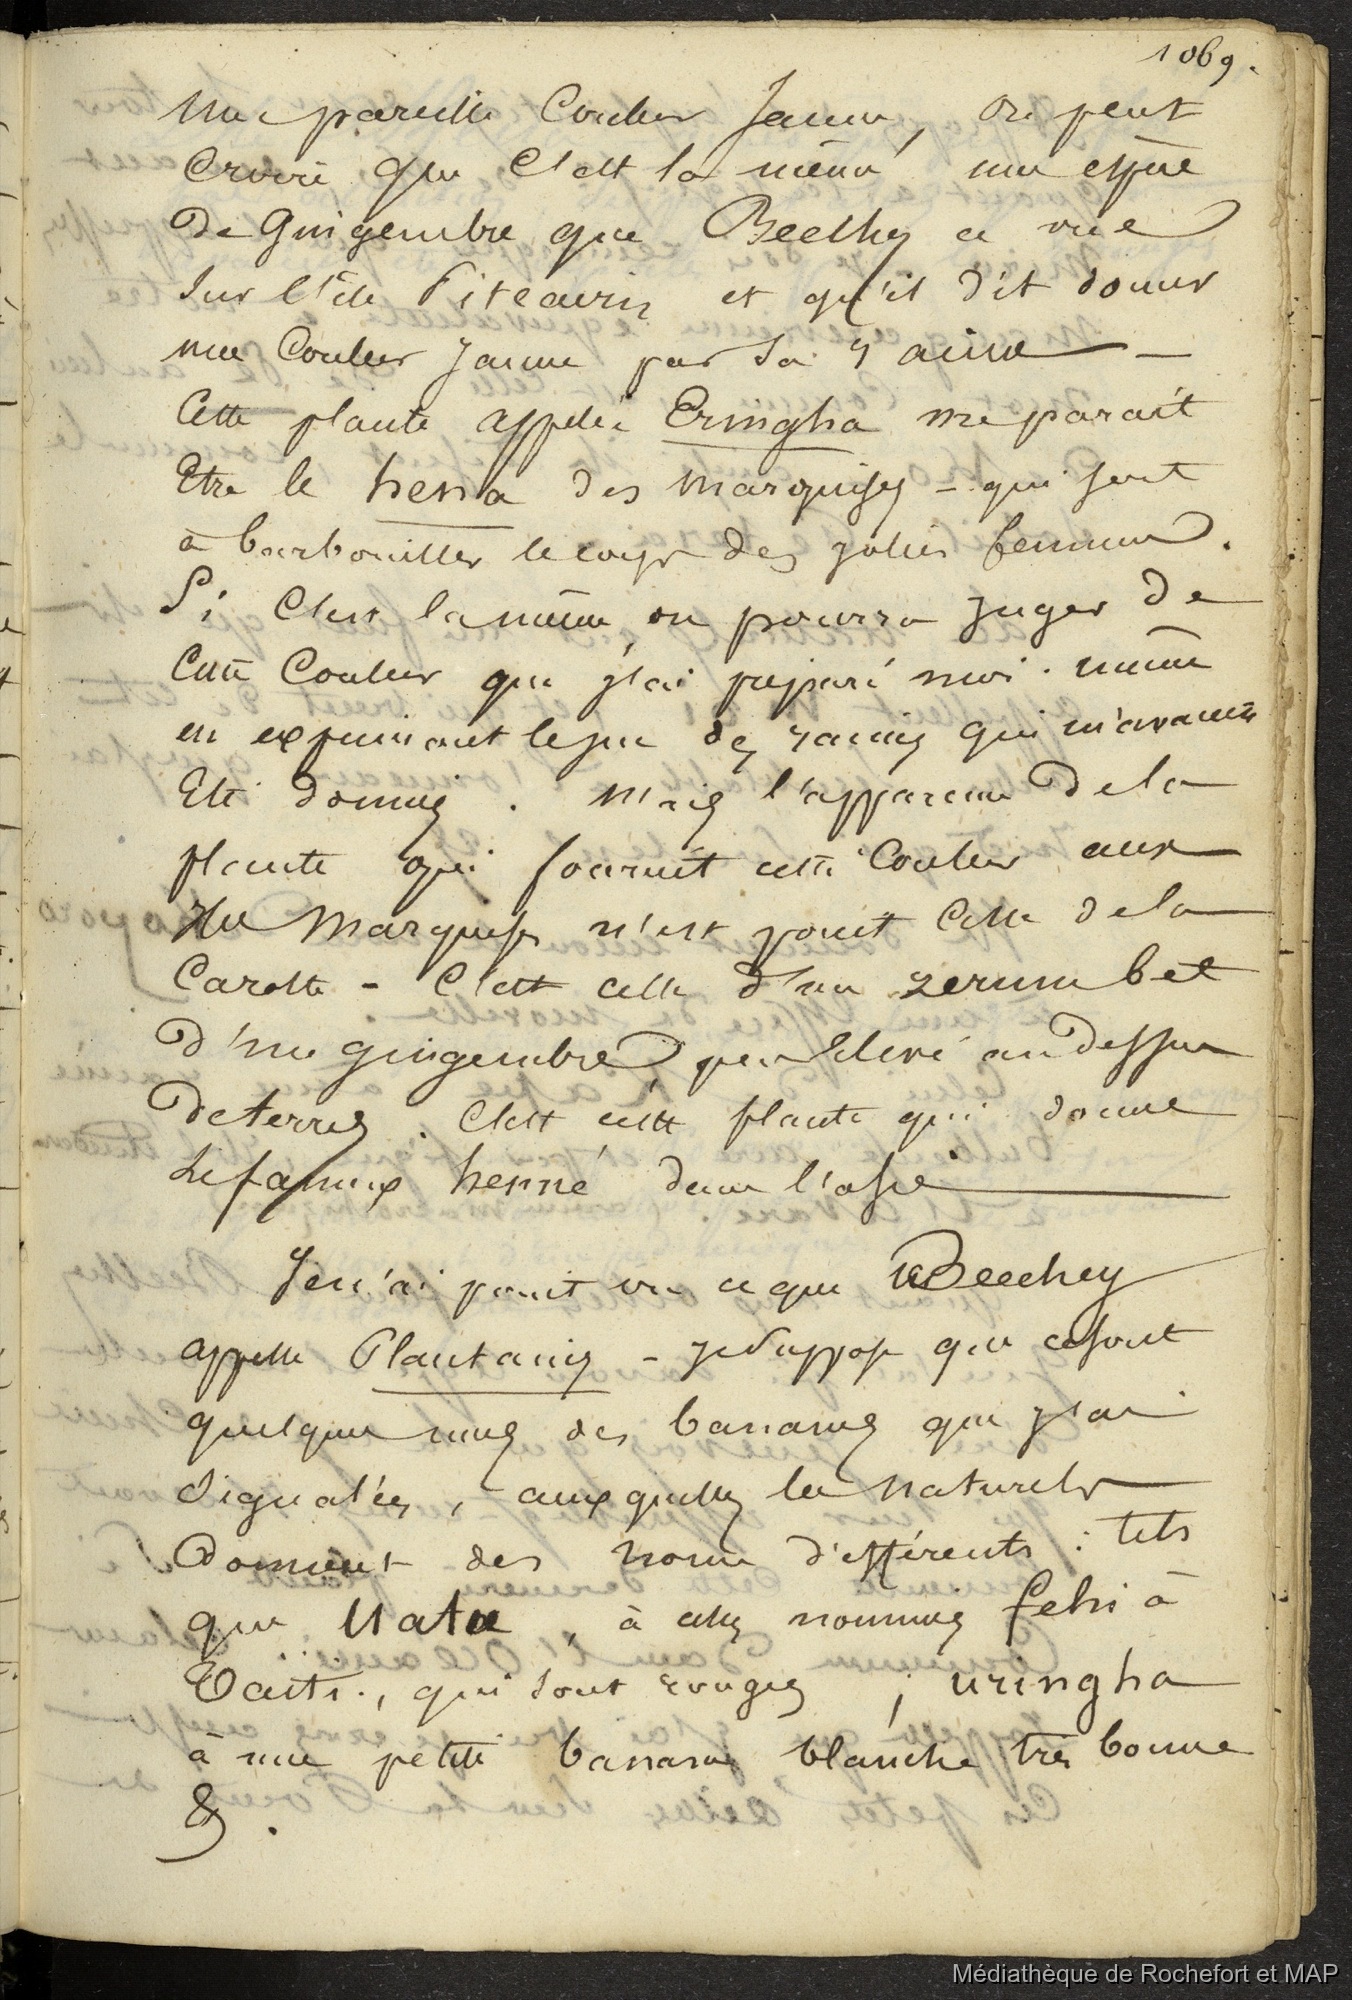 1069.
une pareille Couleur Jaune, on peut
Croire que C'est la même une espece
De Gingembre que Beechey a vue
Sur l'île Pitcairn et qu'il dit donner
une Couleur Jaune par Sa racine —
Cette plante appelée Eringha me parait
Etre le hena des Marquises - qui sert
à barbouiller le corps des jolies femmes.
Si C'est la même on pourra juger de
Cette Couleur que j'ai préparé moi-même
en exprimant le jus des racines qui m'avaient
Eté données. Mais l'apparence De la
plante qui fournit cette Couleur aux
Iles Marquises n'est point Celle de la
Carotte - C'est celle d'un zerumbet
D'un gingembre peu élevé au Dessus
De terre. C'est cette plante qui donne
Le fameux henné dans l'asie
Je n'ai point vu ce que Beechey
appelle Plantains - je Suppose que ce sont
quelques unes des bananes que j'ai
Signalées, auxquelles les naturels
Donnent des noms différents : tels
que Uatu, à celles nommées fehi à
Taïti., qui sont rouges ; uringha
à une petite banane blanche très bonne
&.
Médiathèque de Rochefort et MAP